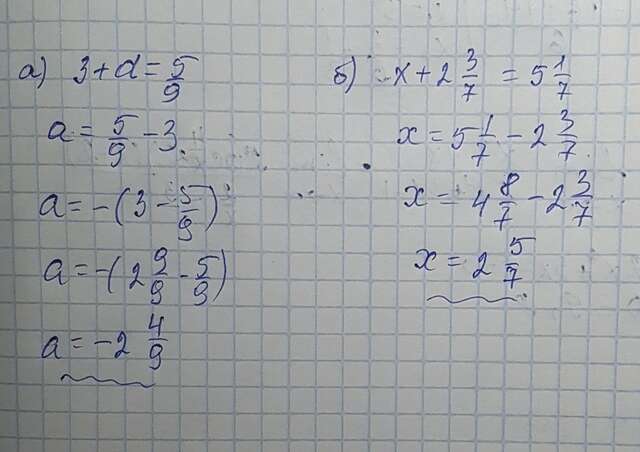 а) 3+a=5/9
a=5/9-3
a=-(3-5/9)
a=-(2 9/9-5/9)
a=-2 4/9
б) x+2 3/7=5 1/7
x=5 1/7-2 3/7
x=4 8/7-2 3/7
x=2 5/7